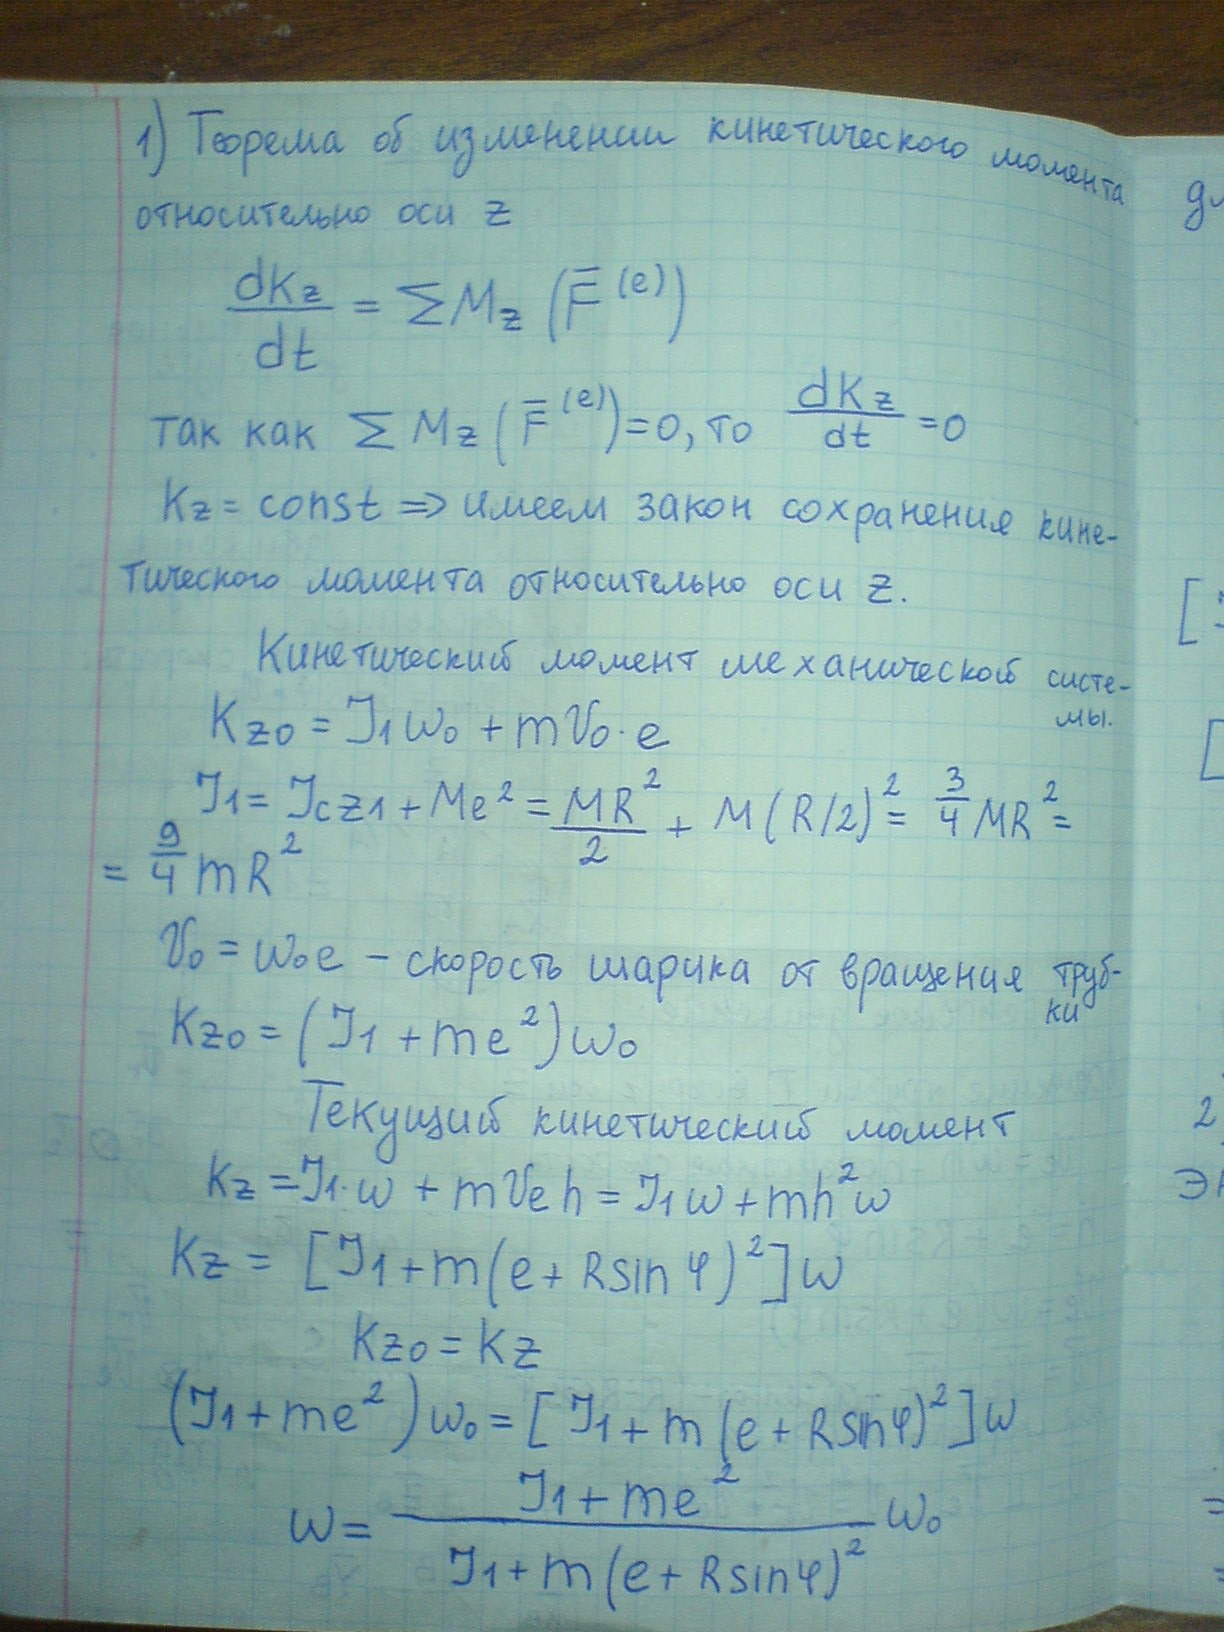 1) Теорема об изменении кинетического момента
относительно оси z
dKz/dt = ΣMz (F̅⁽ᵉ⁾)
так как ΣMz (F̅⁽ᵉ⁾)=0, то dKz/dt =0
Kz = const => имеем закон сохранения кине-
тического момента относительно оси z.
Кинетический момент механической систе-
мы.
Kz0 = J1ω0 + mV0·e
J1 = Jcz1 + Me² = MR²/2 + M(R/2)² = 3/4 MR² =
= 9/4 mR²
V0 = ω0e – скорость шарика от вращения труб-
ки
Kz0 = (J1 + me²)ω0
Текущий кинетический момент
Kz = J1·ω + mVeh = J1ω + mh²ω
Kz = [J1 + m(e + Rsinφ)²]ω
Kz0 = Kz
(J1 + me²)ω0 = [J1 + m(e + Rsinφ)²]ω
ω = (J1 + me²)/(J1 + m(e + Rsinφ)²) ω0